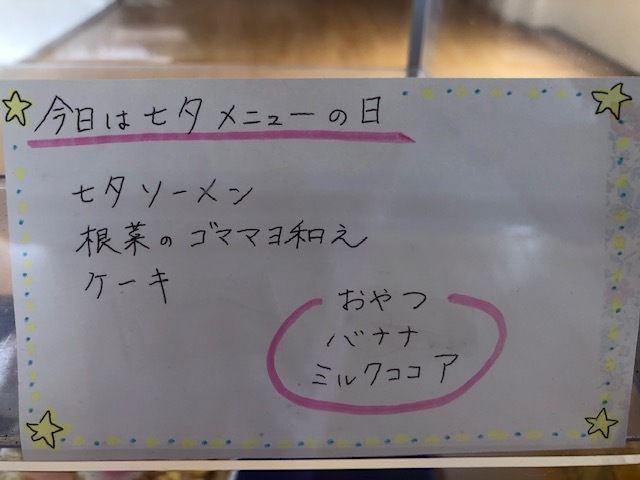 今日は七夕メニューの日
七夕ソーメン
根菜のゴママヨ和え
ケーキ
おやつ
バナナ
ミルクココア